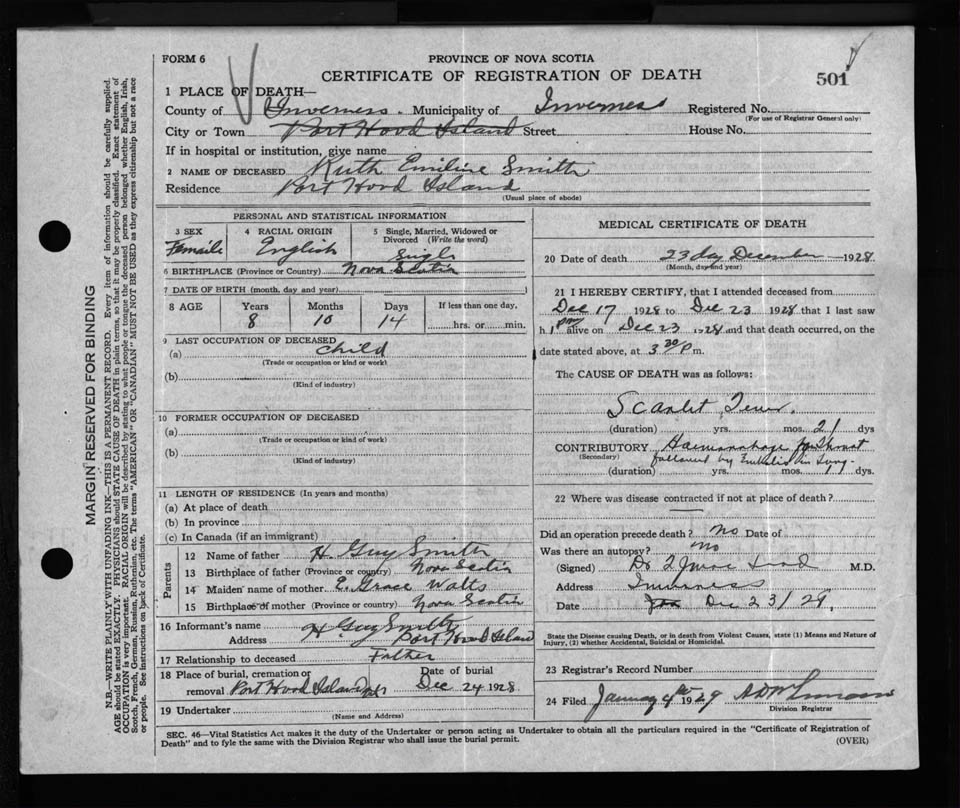 FORM 6
PROVINCE OF NOVA SCOTIA
CERTIFICATE OF REGISTRATION OF DEATH
501
1 PLACE OF DEATH—
County of Inverness. Municipality of Inverness Registered No.
(For use of Registrar General only)
City or Town Port Hood Island Street House No.
If in hospital or institution, give name
2 NAME OF DECEASED Ruth Emiline Smith
Residence Port Hood Island
(Usual place of abode)
PERSONAL AND STATISTICAL INFORMATION
3 SEX 4 RACIAL ORIGIN 5 Single, Married, Widowed or Divorced (Write the word)
Female English Single
6 BIRTHPLACE (Province or Country) Nova Scotia
7 DATE OF BIRTH (month, day and year)
8 AGE Years Months Days If less than one day,
8 10 14 hrs. or min.
9 LAST OCCUPATION OF DECEASED
(a) child
(Trade or occupation or kind or work)
(b)
(Kind of industry)
10 FORMER OCCUPATION OF DECEASED
(a)
(Trade or occupation or kind of work)
(b)
(Kind of industry)
11 LENGTH OF RESIDENCE (In years and months)
(a) At place of death
(b) In province
(c) In Canada (if an immigrant)
Parents
12 Name of father H. Guy Smith
13 Birthplace of father (Province or country) Nova Scotia
14 Maiden name of mother E. Grace Watts
15 Birthplace of mother (Province or country) Nova Scotia
16 Informant's name H Guy Smith
Address Port Hood Island
17 Relationship to deceased Father
18 Place of burial, cremation or removal Date of burial
Port Hood Island Dec 24 1928
19 Undertaker
(Name and Address)
MEDICAL CERTIFICATE OF DEATH
20 Date of death 23 day December 1928
(Month, day and year)
21 I HEREBY CERTIFY, that I attended deceased from
Dec 17 1928 to Dec 23 1928 that I last saw
h alive on Dec 23 1928 and that death occurred, on the
date stated above, at 3 30 P m.
The CAUSE OF DEATH was as follows:
Scarlet Fever.
(duration) yrs. mos. 21 dys
CONTRIBUTORY Haemorrhage Throat
(Secondary) followed by
(duration) yrs. mos. dys.
22 Where was disease contracted if not at place of death?
Did an operation precede death? no Date of
Was there an autopsy? no
(Signed) Dr M.D.
Address Inverness
Date Dec 23/29.
State the Disease causing Death, or in death from Violent Causes, state (1) Means and Nature of
Injury, (2) whether Accidental, Suicidal or Homicidal.
23 Registrar's Record Number
24 Filed January 4th 1929
Division Registrar
SEC. 46—Vital Statistics Act makes it the duty of the Undertaker or person acting as Undertaker to obtain all the particulars required in the "Certificate of Registration of
Death" and to fyle the same with the Division Registrar who shall issue the burial permit.
(OVER)
MARGIN RESERVED FOR BINDING
N.B.—WRITE PLAINLY WITH UNFADING INK—THIS IS A PERMANENT RECORD. Every item of information should be carefully supplied.
AGE should be stated EXACTLY. PHYSICIANS should STATE CAUSE OF DEATH in plain terms, so that it may be properly classified. Exact statement of
OCCUPATION is very important. RACIAL ORIGIN will be described by stating to what people or tongue the deceased person belonged whether English, Irish,
Scotch, French, German, Russian, Ruthenian, etc. The terms "AMERICAN" OR "CANADIAN" MUST NOT BE USED as they express citizenship but not a race
or people. See instructions on back of Certificate.